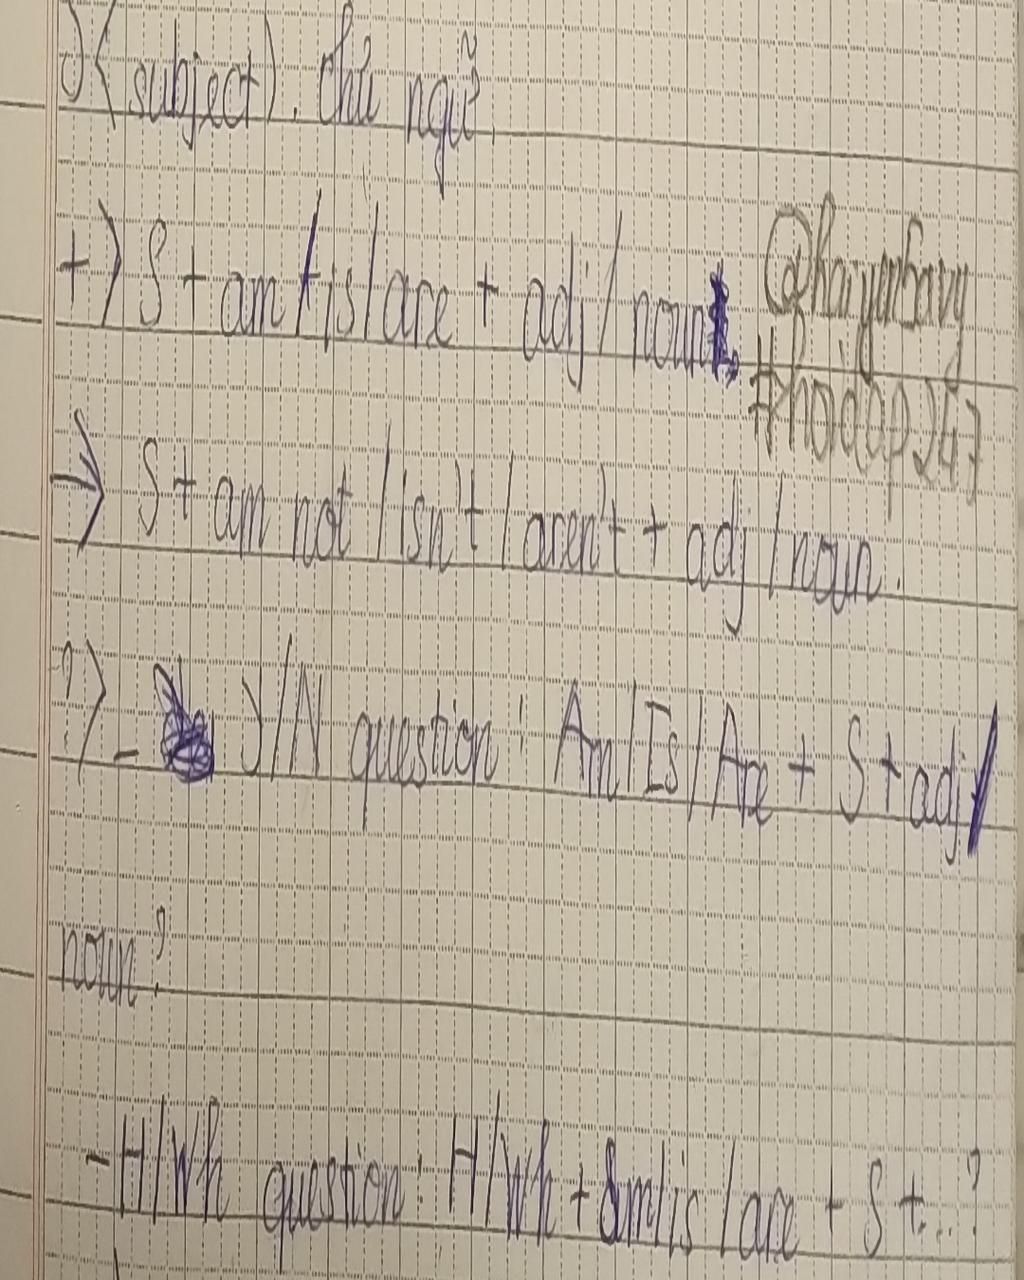 S (subject). chủ ngữ.
+) S + am / is / are + adj / noun.
#hoidap247
→) S + am not / isn't / aren't + adj / noun.
?) - Y/N question : Am / Is / Are + S + adj /
noun?
- H/Wh question : H/Wh + am / is / are + S + ...?